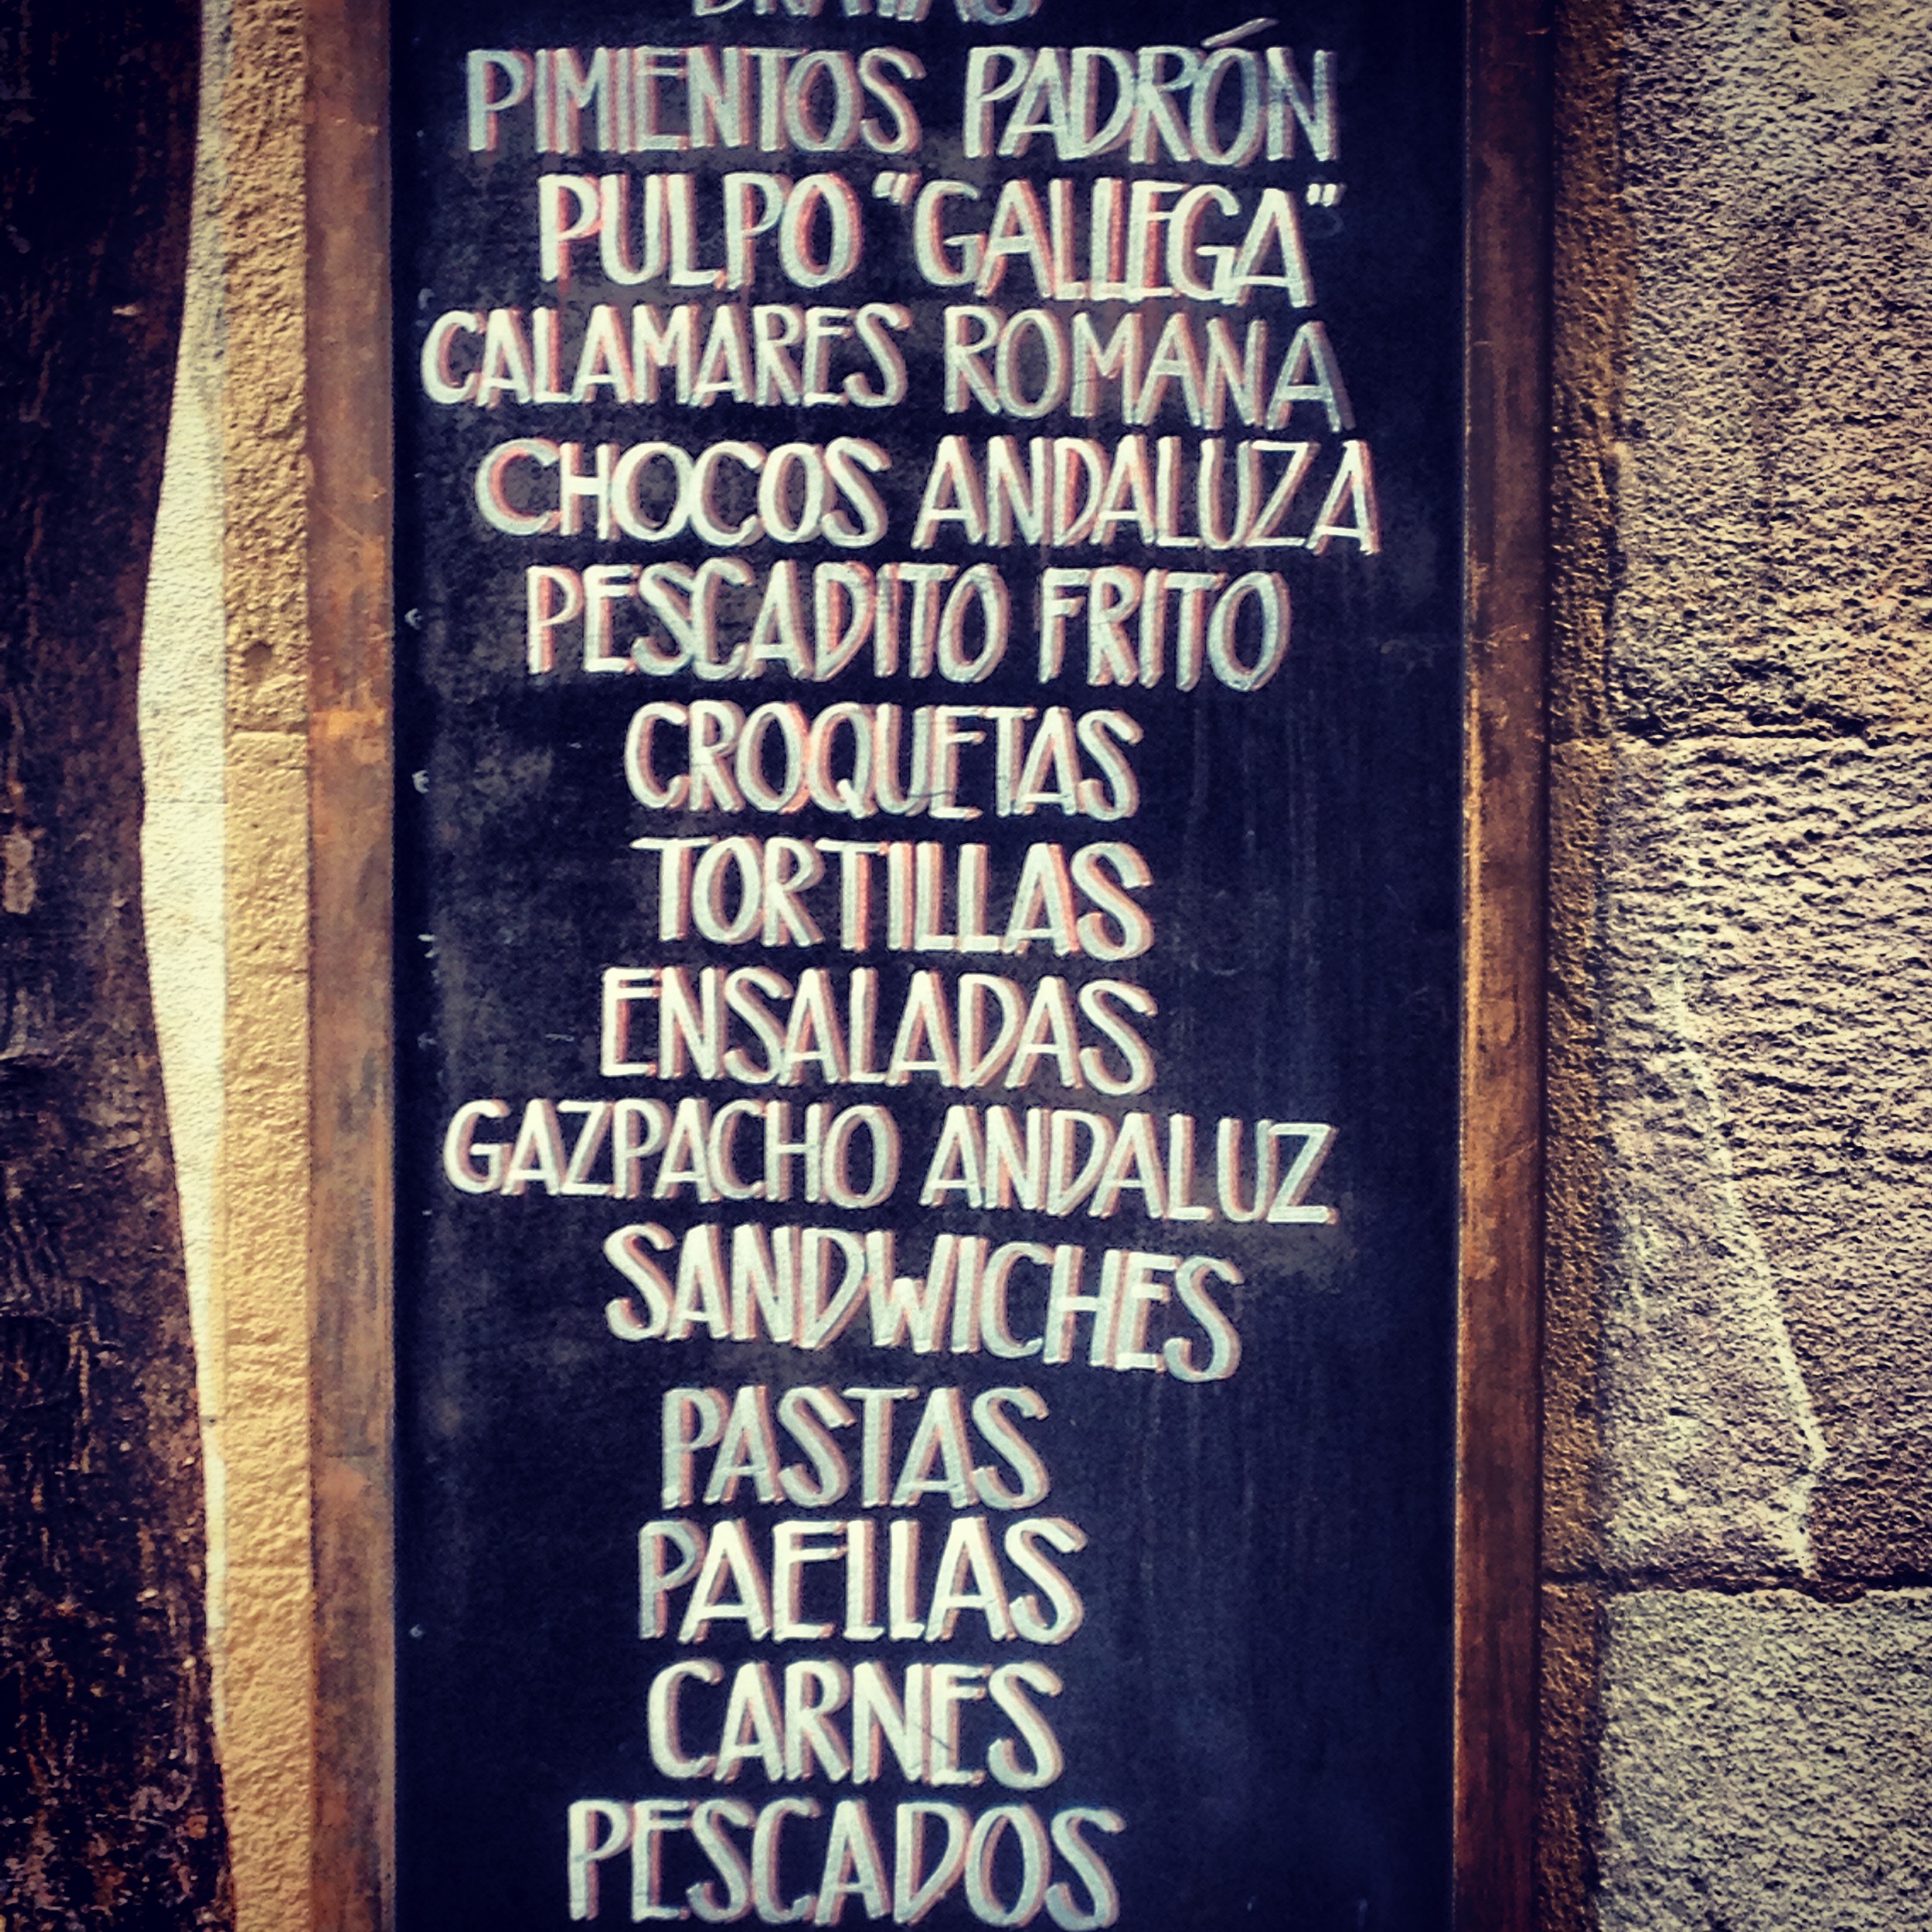 BRAVAS
PIMIENTOS PADRÓN
PULPO "GALLEGA"
CALAMARES ROMANA
CHOCOS ANDALUZA
PESCADITO FRITO
CROQUETAS
TORTILLAS
ENSALADAS
GAZPACHO ANDALUZ
SANDWICHES
PASTAS
PAELLAS
CARNES
PESCADOS